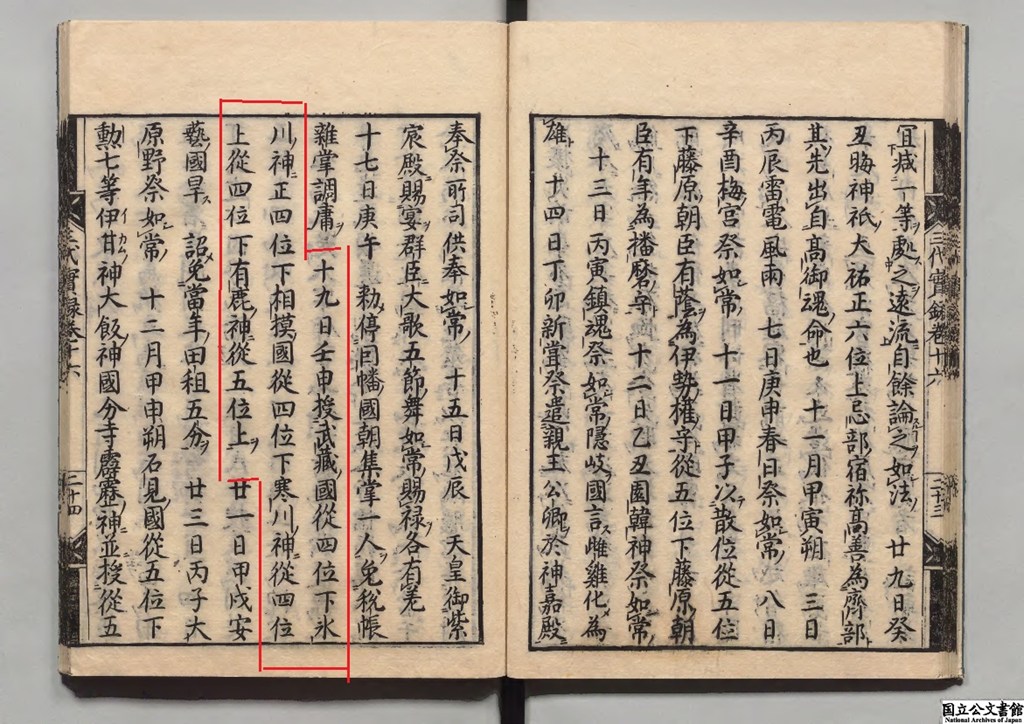 冝減一等處之遠流自餘論之如法 廿九日癸
丑晦神祇大祐正六位上忌部宿祢高善為齊部
其先出自髙御魂命也 十一月甲寅朔 三日
丙辰雷電風雨 七日庚申春日祭如常 八日
辛酉梅宮祭如常 十一日甲子以散位從五位
下藤原朝臣有蔭為伊勢權守從五位下藤原朝
臣有年為播磨守 十二日乙丑園韓神祭如常
十三日丙寅鎮魂祭如常隱岐國言雌雞化為
雄 十四日丁卯新甞祭遣親王公卿於神嘉殿
三代實録卷十六
二十三
奉祭所司供奉如常 十五日戊辰 天皇御紫
宸殿賜宴群臣大歌五節舞如常賜禄各有差
十七日庚午 勅停因幡國朝集掌一人免税帳
雜掌調庸 十九日壬申授武藏國從四位下氷
川神正四位下相摸國從四位下寒川神從四位
上從四位下有鹿神從五位上 廿一日甲戌安
藝國旱 詔免當年田租五分 廿三日丙子大
原野祭如常 十二月甲申朔石見國從五位下
勲七等伊甘神大飯神國分寺霹靂神並授從五
イ カム
三代實録卷十六
二十四
国立公文書館
National Archives of Japan